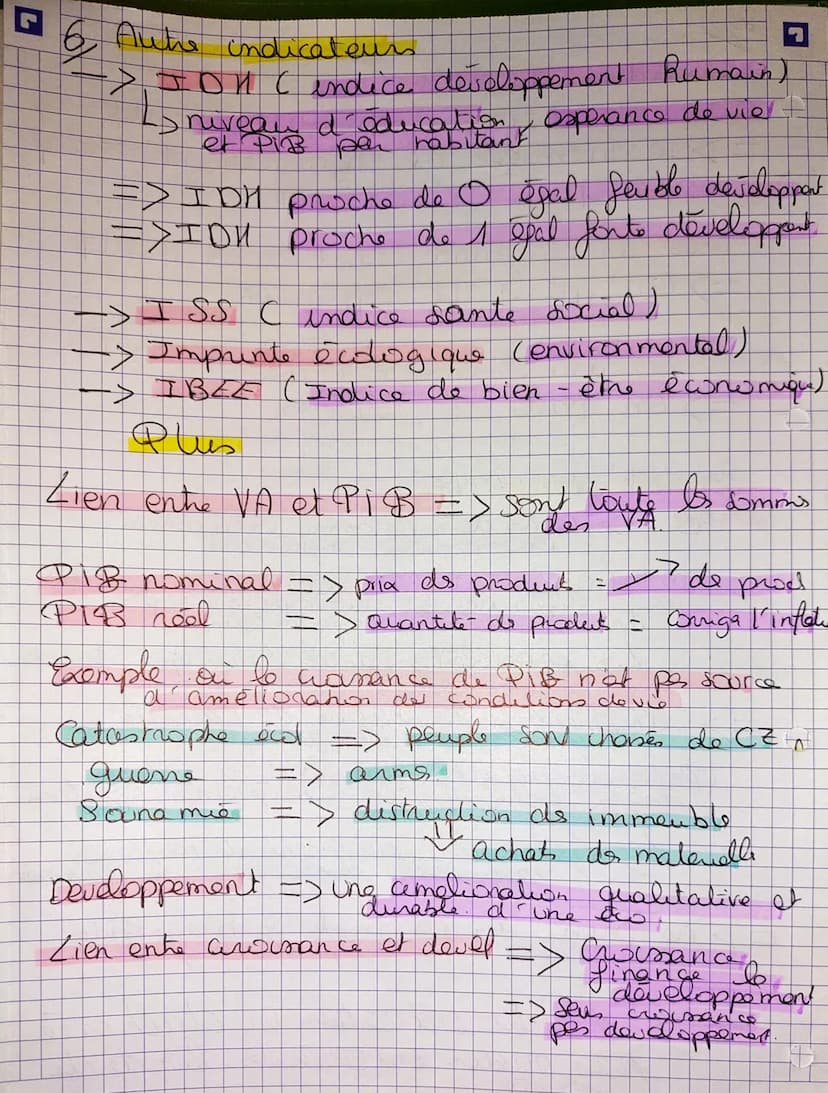 6, Autre indicateurs
-> IDH ( indice développement Humain)
↳ niveau d'éducation, esperance de vie
et PiB par habitant
=> IDH proche de 0 égal faible développent
=> IDH proche de 1 égal forte développent
-> ISS ( indice sante social)
-> Imprunte écologique (environmental)
-> IBEE (Indice de bien-être économique)
Plus
Lien entre VA et PiB => sont toute les somms
des VA.
PiB nominal => prix ds produit = ↗ de prod
PIB réel => quantité ds produit = corriga l'inflat
Exemple où la croissance de PiB n'est pas source
d'amélioration des conditions de vie
Catastrophe écol => peuple sont chassés de CZ
guerre => arms
Sounamie => distruction ds immeuble
⇓ achat ds materielle
Developpement => une amelioration qualitative et
durable d'une éco.
Lien entre croissance et devel => Croissance
finance le
développement
=> sans croissance
pas developpement.